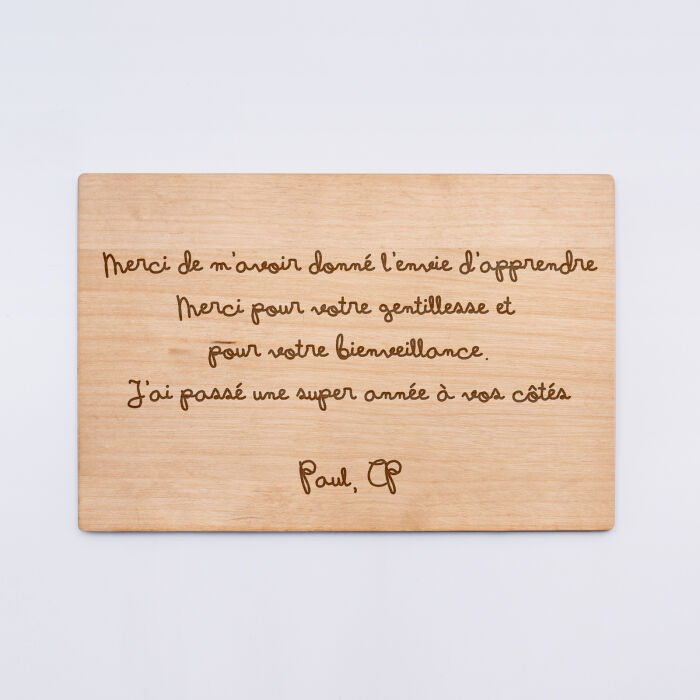 Merci de m'avoir donné l'envie d'apprendre
Merci pour votre gentillesse et
pour votre bienveillance.
J'ai passé une super année à vos côtés
Paul, CP